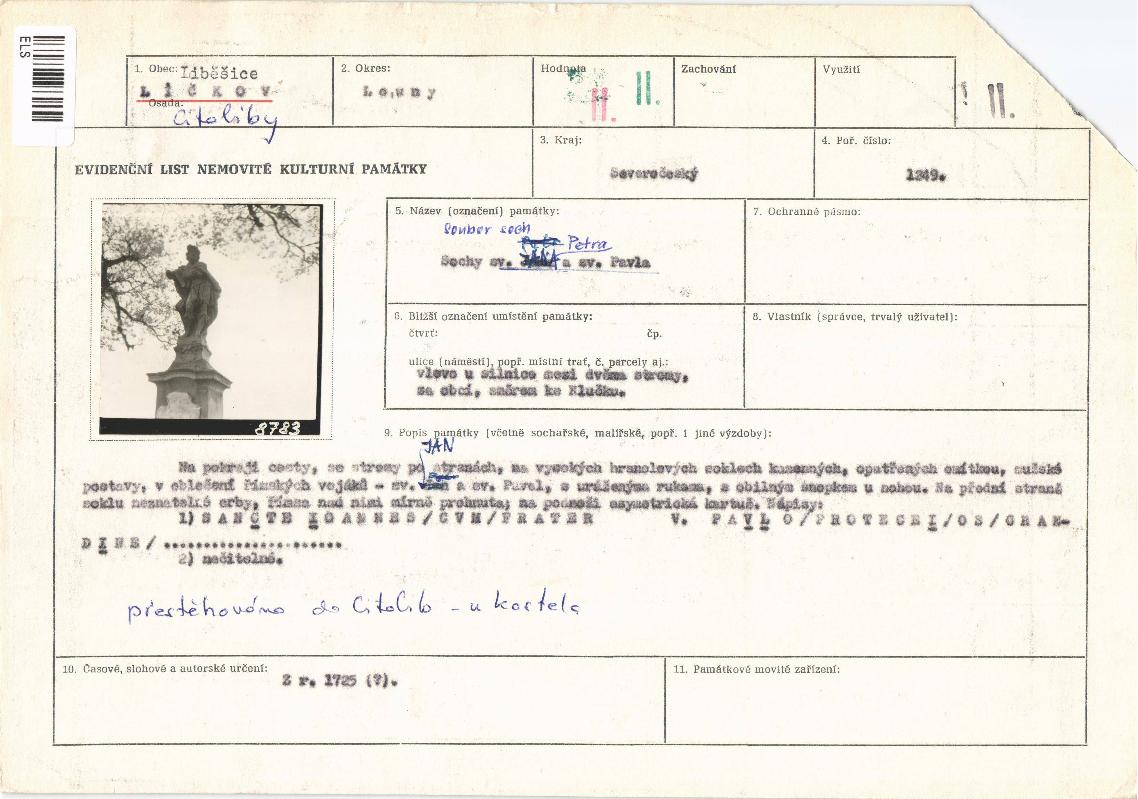 ELS
1. Obec: Liběšice
LÍČKOV
Osada:
Citoliby
2. Okres:
Louny
Hodnota
II.
II.
Zachování
Využití
II.
EVIDENČNÍ LIST NEMOVITÉ KULTURNÍ PAMÁTKY
3. Kraj:
Severočeský
4. Poř. číslo:
1249.
5. Název (označení) památky:
Soubor soch
Petra
Sochy sv. JANA a sv. Pavla
7. Ochranné pásmo:
6. Bližší označení umístění památky:
čtvrť: čp.
ulice (náměstí), popř. místní trať, č. parcely aj.:
vlevo u silnice mezi dvěma stromy,
za obcí, směrem ke Hlučku.
8. Vlastník (správce, trvalý uživatel):
8783
9. Popis památky (včetně sochařské, malířské, popř. i jiné výzdoby):
JAN
Na pokraji cesty, se stromy po stranách, na vysokých hranolových soklech kamenných, opatřených omítkou, mužské
postavy, v oblečení římských vojáků - sv. a sv. Pavel, s uráženýma rukama, s obilným snopkem u nohou. Na přední straně
soklu neznatelné erby, římsa nad nimi mírně prohnuta; na podnoži asymetrická kartuš. Nápisy:
1) SANCTE IOANNES/CVM/FRATER V. PAVLO/PROTEGEI/OS/GRAN-
DINE/......................
2) nečitelné.
přestěhováno do Citolib - u kostela
10. Časové, slohové a autorské určení:
Z r. 1725 (?).
11. Památkové movité zařízení: